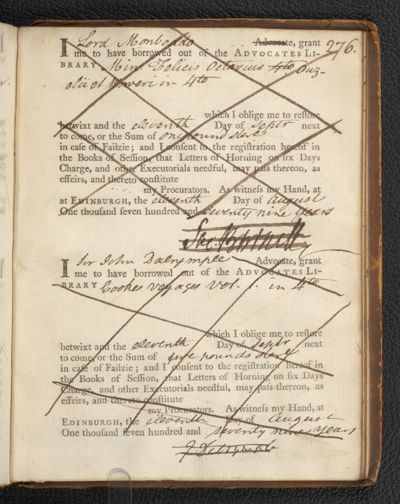 276.
I Lord Monboddo Advocate, grant
me to have borrowed out of the ADVOCATES LI-
BRARY Min. Felicis Octavius 4to
in 4to
which I oblige me to reſtore
betwixt and the eleventh Day of Septr next
to come, or the Sum of one pound Ster.
in caſe of Failzie; and I conſent to the regiſtration hereof in
the Books of Seſſion, that Letters of Horning on ſix Days
Charge, and other Executorials needful, may paſs thereon, as
effeirs, and thereto conſtitute
my Procurators. As witneſs my Hand, at
at EDINBURGH, the eleventh Day of August
One thouſand ſeven hundred and seventy nine years
I Sir John Dalrymple Advocate, grant
me to have borrowed out of the ADVOCATES LI-
BRARY Cookes voyages vol. in 4to
which I oblige me to reſtore
betwixt and the eleventh Day of Septr next
to come, or the Sum of five pounds
in caſe of Failzie; and I conſent to the regiſtration hereof in
the Books of Seſſion, that Letters of Horning on ſix Days
Charge, and other Executorials needful, may paſs thereon, as
effeirs, and thereto conſtitute
my Procurators. As witneſs my Hand, at
EDINBURGH, the eleventh Day of August
One thouſand ſeven hundred and seventy nine years